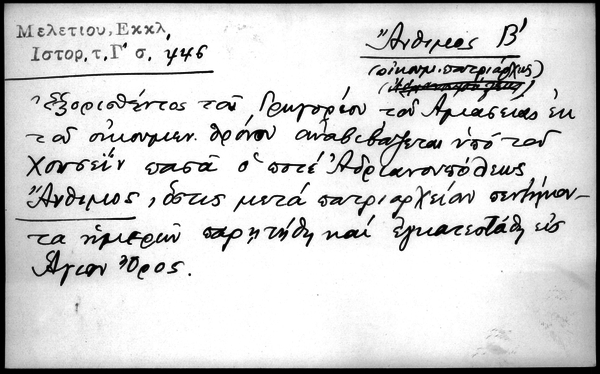 Μελετίου, Εκκλ.
Ιστορ, τ, Γ' σ. 446
Ἄνθιμος Β'
(οἰκουμ. πατριάρχης)
Ἐξορισθέντος τοῦ Γρηγορίου τοῦ Ἀμασείας ἐκ
τοῦ οἰκουμεν. θρόνου ἀναβιβάζεται ὑπό τοῦ
Χουσεΐν πασᾶ ὁ ποτέ Ἀδριανουπόλεως
Ἄνθιμος, ὅστις μετά πατριαρχείαν πεντήκον-
τα ἡμερῶν παρῃτήθη καί ἐγκατεστάθη εἰς
Ἅγιον Ὄρος.